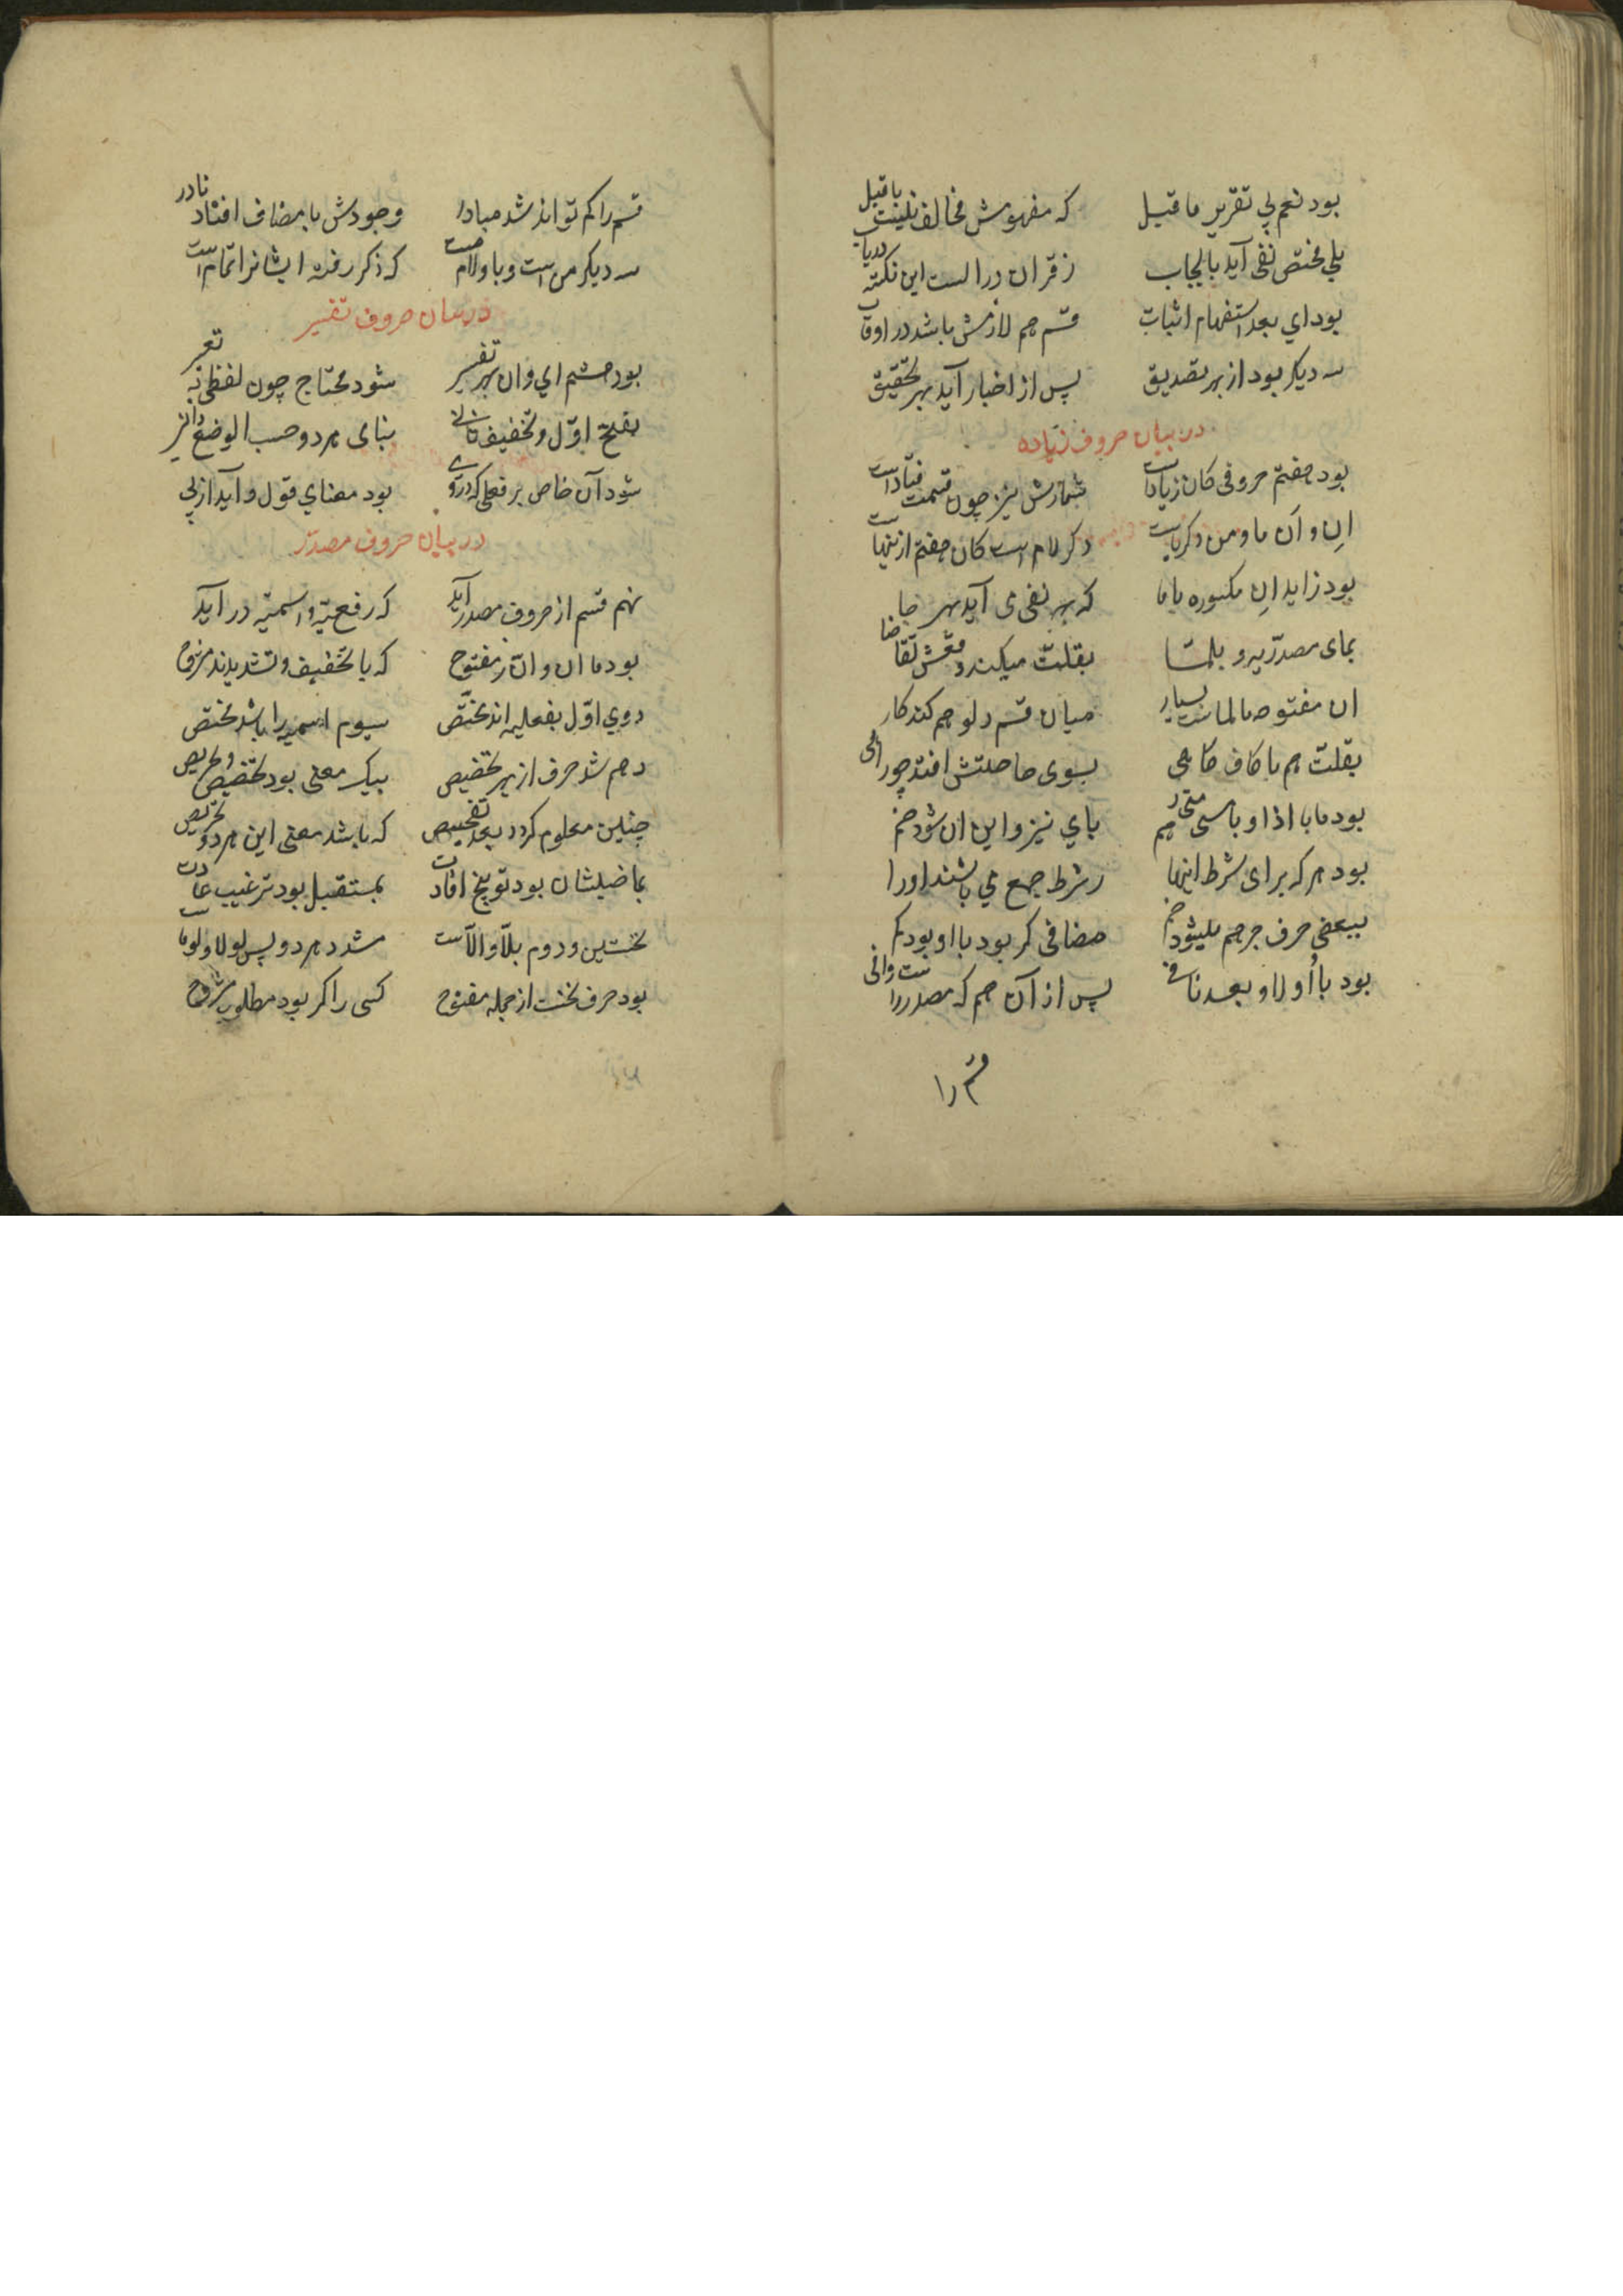 بود نعم پی تقریر ما قبل که مفهومش مخالف نیست با قبل
بلی مختص نفی آید بایجاب ز قران در الست این نکته دریاب
بود ای بعد استفهام اثبات قسم هم لازمش باشد در اوقات
سه دیکر بود از بهر تصدیق پس از اخبار آید بهر تحقیق
در بیان حروف زیاده
بود هفتم حروفی کان زیادات شمارش نیز چون قسمت فتادست
اِن و اَن ما و من دکر باست دکر لام است کان هفتم ازینهاست
بود زاید اِن مکسوره با ما که بهر نفی می آید بهر جا
بمای مصدریه و بلما بقلت میکند وقعش تقاضا
ان مفتوحه با لماست بسیار میان قسم و لو هم کند کار
بقلت هم با کاف کاهی بسوی ما صلتش افتد چو راهی
بود ما با اذا و با متی هم بای نیز و این ان شود ضم
بود هر که برای شرط اینها شرط جمع می باشند او را
ببعضی حرف جر هم میشود ضم مضافی کر بود با او بود کم
بود با اُو لا و بعد نافی پس از آن هم که مصدر راست وانی
قسم را
قسم را کم تواند شد مبادر وجودش با مضاف افتاد نادر
سه دیکر من است و با و لام است که ذکر رفته ایشانرا تمام است
در بیان حروف تفسیر
بود هشتم ای و ان بهر تفسیر شود محتاج چون لفظی به تعبیر
بفتح اوّل و تخفیف ثانی بنای هر دو حسب الوضع دانی
شود آن خاص بر فعلی که در وی بود معنای قول و آید از پی
در بیان حروف مصدر
نهم قسم از حروف مصدر آید که رفعیّه و اسمیّه در آید
بود ما ان و انّ ار مفتوح که با تخفیف و تشدیدند مشروح
دوی اوّل بفعلیه اند مختص سیوم اسمیه را باشد مختص
دهم شد حرف از بهر تحضیض بیک معنی بود تحضیض و تحریض
چنین معلوم کردد بعد تفحیص که باشد معنی این هر دو تحریص
بماضیشان بود توبیخ افادت بمستقبل بود ترغیب عادت
نخستین و دوم هلّا و الّاست مشدد هر دو پس لولا و لوماست
بود حرف نخست از جمله مفتوح کسی را کر بود مطلوب مشروح